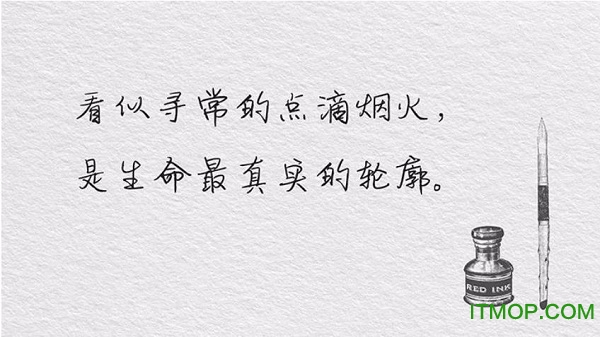 看似寻常的点滴烟火，
是生命最真实的轮廓。
RED INK
ITMOP.COM